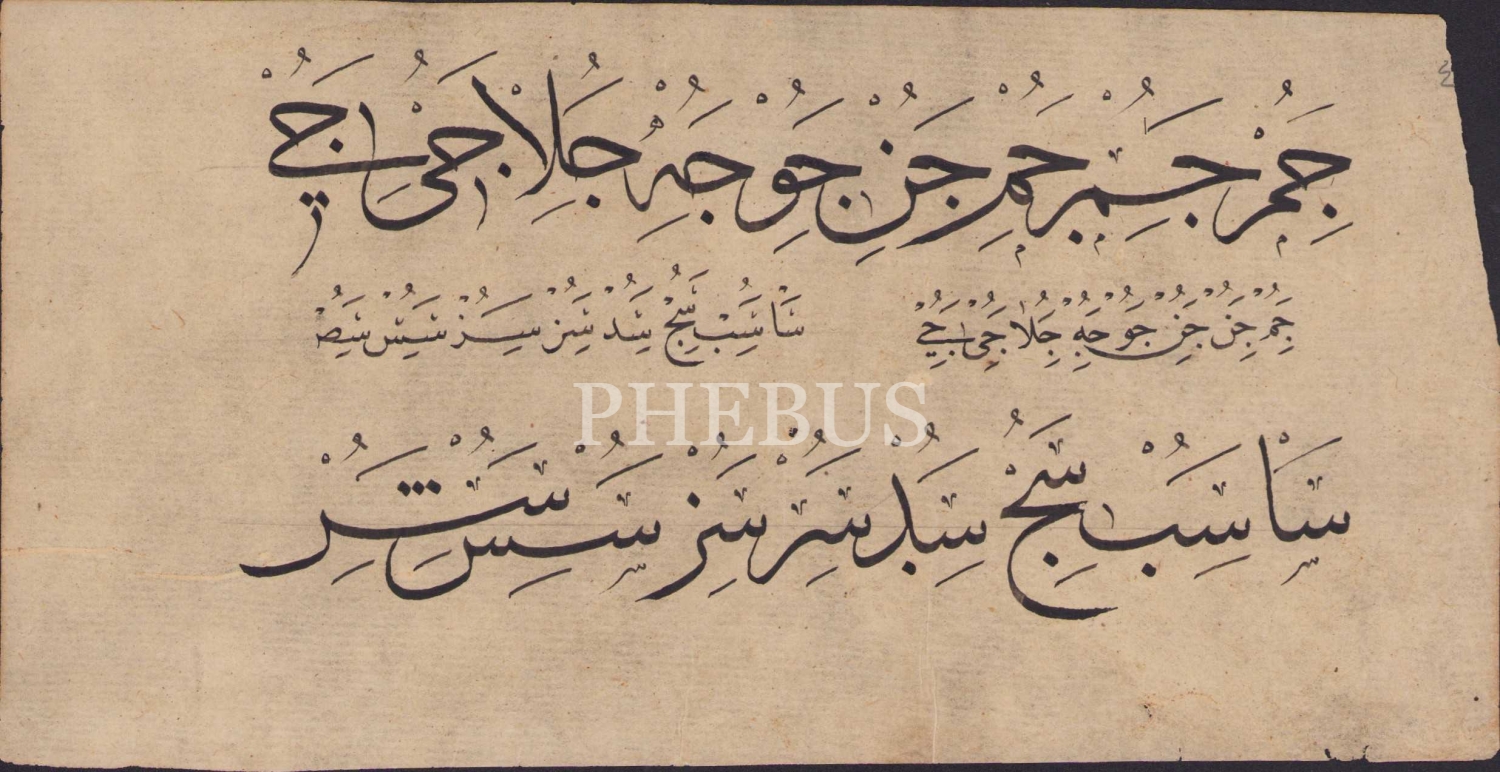 جم جم جم جن جو جه جلا جى جے
جم جن جن جو جه جلا جى جے سا سب سج سد سز سز سس سص
PHEBUS
سا سب سج سد سر سز سس سر
٤